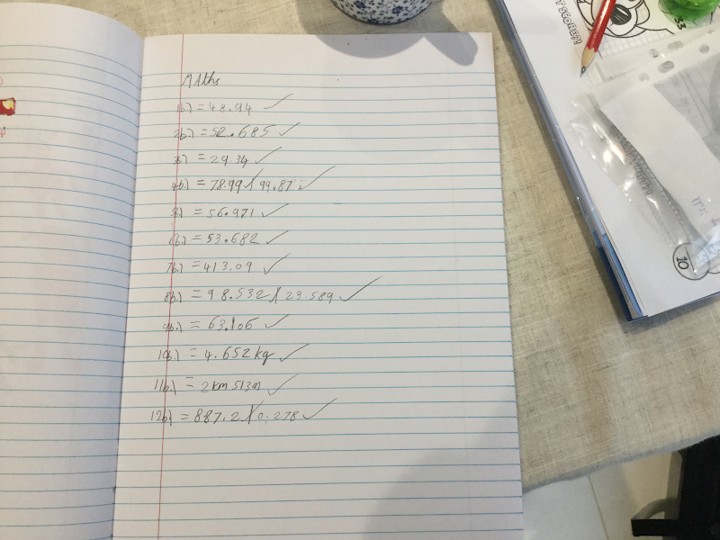 MAths
1b.) = 48.94
2b.) = 52.685
3b.) = 29.34
4b.) = 78.99 / 99.87
5b.) = 56.971
6b.) = 53.682
7b.) = 413.09
8b.) = 98.532 / 23.589
9b.) = 63.106
10b.) = 4.652 kg
11b.) = 2 km 513m
12b.) = 887.2 / 0.278
10